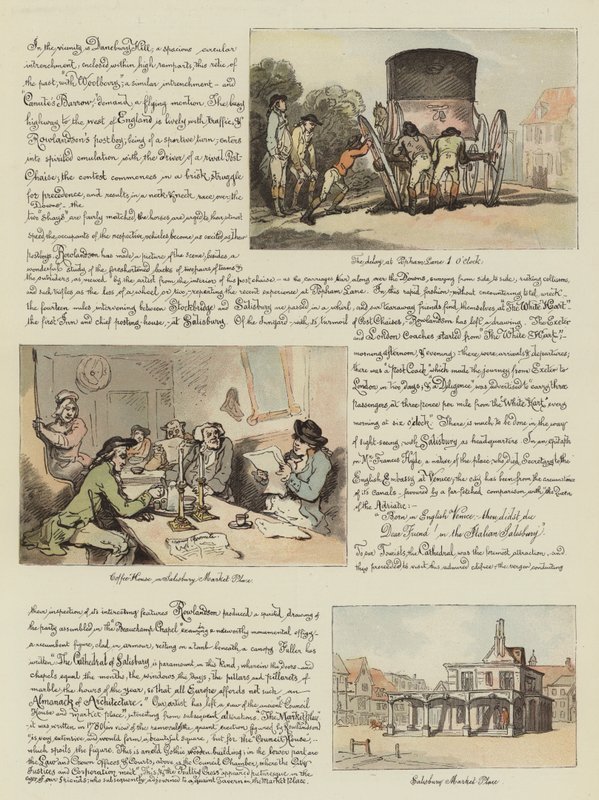 In the vicinity is Danebury Hill; a spacious circular
intrenchment, enclosed within high ramparts, this relic of
the past, with "Woolberry"; a similar intrenchment - and
"Canute's Barrow," demand, a flying mention. The busy
highway to the west of England, is lively with traffic, &
Rowlandson's post boy, being of a sportive turn; enters
into spirited emulation with the driver of a rival Post
Chaise, the contest commences in a brisk struggle
for precedence, and results, in a neck & neck race, over the
"Downs" - the
two "shays" are fairly matched, the horses are urged to their utmost
speed, the occupants of the respective vehicles, become as excited, as their
postboys. Rowlandson has made a picture of the scene, besides a
wonderful study of the foreshortened backs of two pairs of teams &
the outriders, as viewed by the artist from the interior of his post chaise - as the carriages tear along over the Downs, swaying from side to side, risking collisions,
and such trifles as the loss of a wheel, or two, repeating the recent experience at Popham Lane. In this rapid fashion without encountering total wreck -
the fourteen miles intervening between Stockbridge and Salisbury are passed in a whirl, and our tearaway friends find themselves at "The White Hart"
the first Inn and chief posting house, at Salisbury. Of the Innyard - with its turmoil of Post Chaises, Rowlandson has left a drawing. The Exeter
and London Coaches started from "The White Hart", -
The delay, at Popham Lane 1 O'Clock.
morning, afternoon, & evening: there were arrivals & departures;
there was a "Post Coach", which made the journey from Exeter to
London in two days; & a "Diligence" was advertised to carry three
passengers, at three pence per mile from the "White Hart" every
morning at six o'clock". There is much to be done in the way
of sight seeing with Salisbury as headquarters. In an epitaph
on Mr Francis Hyde, a native of the place, who died Secretary to the
English Embassy at Venice; the city has been from the circumstance
of its Canals - favoured by a far-fetched comparison with the Queen
of the Adriatic: -
"Born in English Venice, thou didst die
Dear Friend! in the Italian Salisbury".
To our Tourists, the Cathedral, was the foremost attraction, and
they proceeded to visit this admired edifice - the verger conducting
Coffee House, in Salisbury Market Place.
their inspection of its interesting features Rowlandson produced a spirited drawing of
the party assembled in the "Beauchamp Chapel" examining a noteworthy monumental effigy -
a recumbent figure, clad in armour, resting on a tomb beneath a canopy. Fuller has
written "The Cathedral of Salisbury is paramount in this kind, wherein the doors and
chapels equal the months, the windows the days, the pillars and pillarets of
marble, the hours of the year, so that all Europe affords not such an
Almanack of Architecture." Our artist has left a view of the ancient Council
House and market place, interesting from subsequent alterations. The Market place
it was written, in 1786 (in view of the removal of the quaint erection figured by Rowlandson)
"is very extensive, and would form a beautiful square, but for the Council House,
which spoils the figure. This is an old Gothic wooden building; in the lower part are
the Law and Crown offices & Courts, above is the Council Chamber, where the City
Justices and Corporation meet". This & the Poultry Cross appeared picturesque in the
eyes of our friends; who subsequently adjourned to a quaint Tavern in the Market Place.
Salisbury Market Place